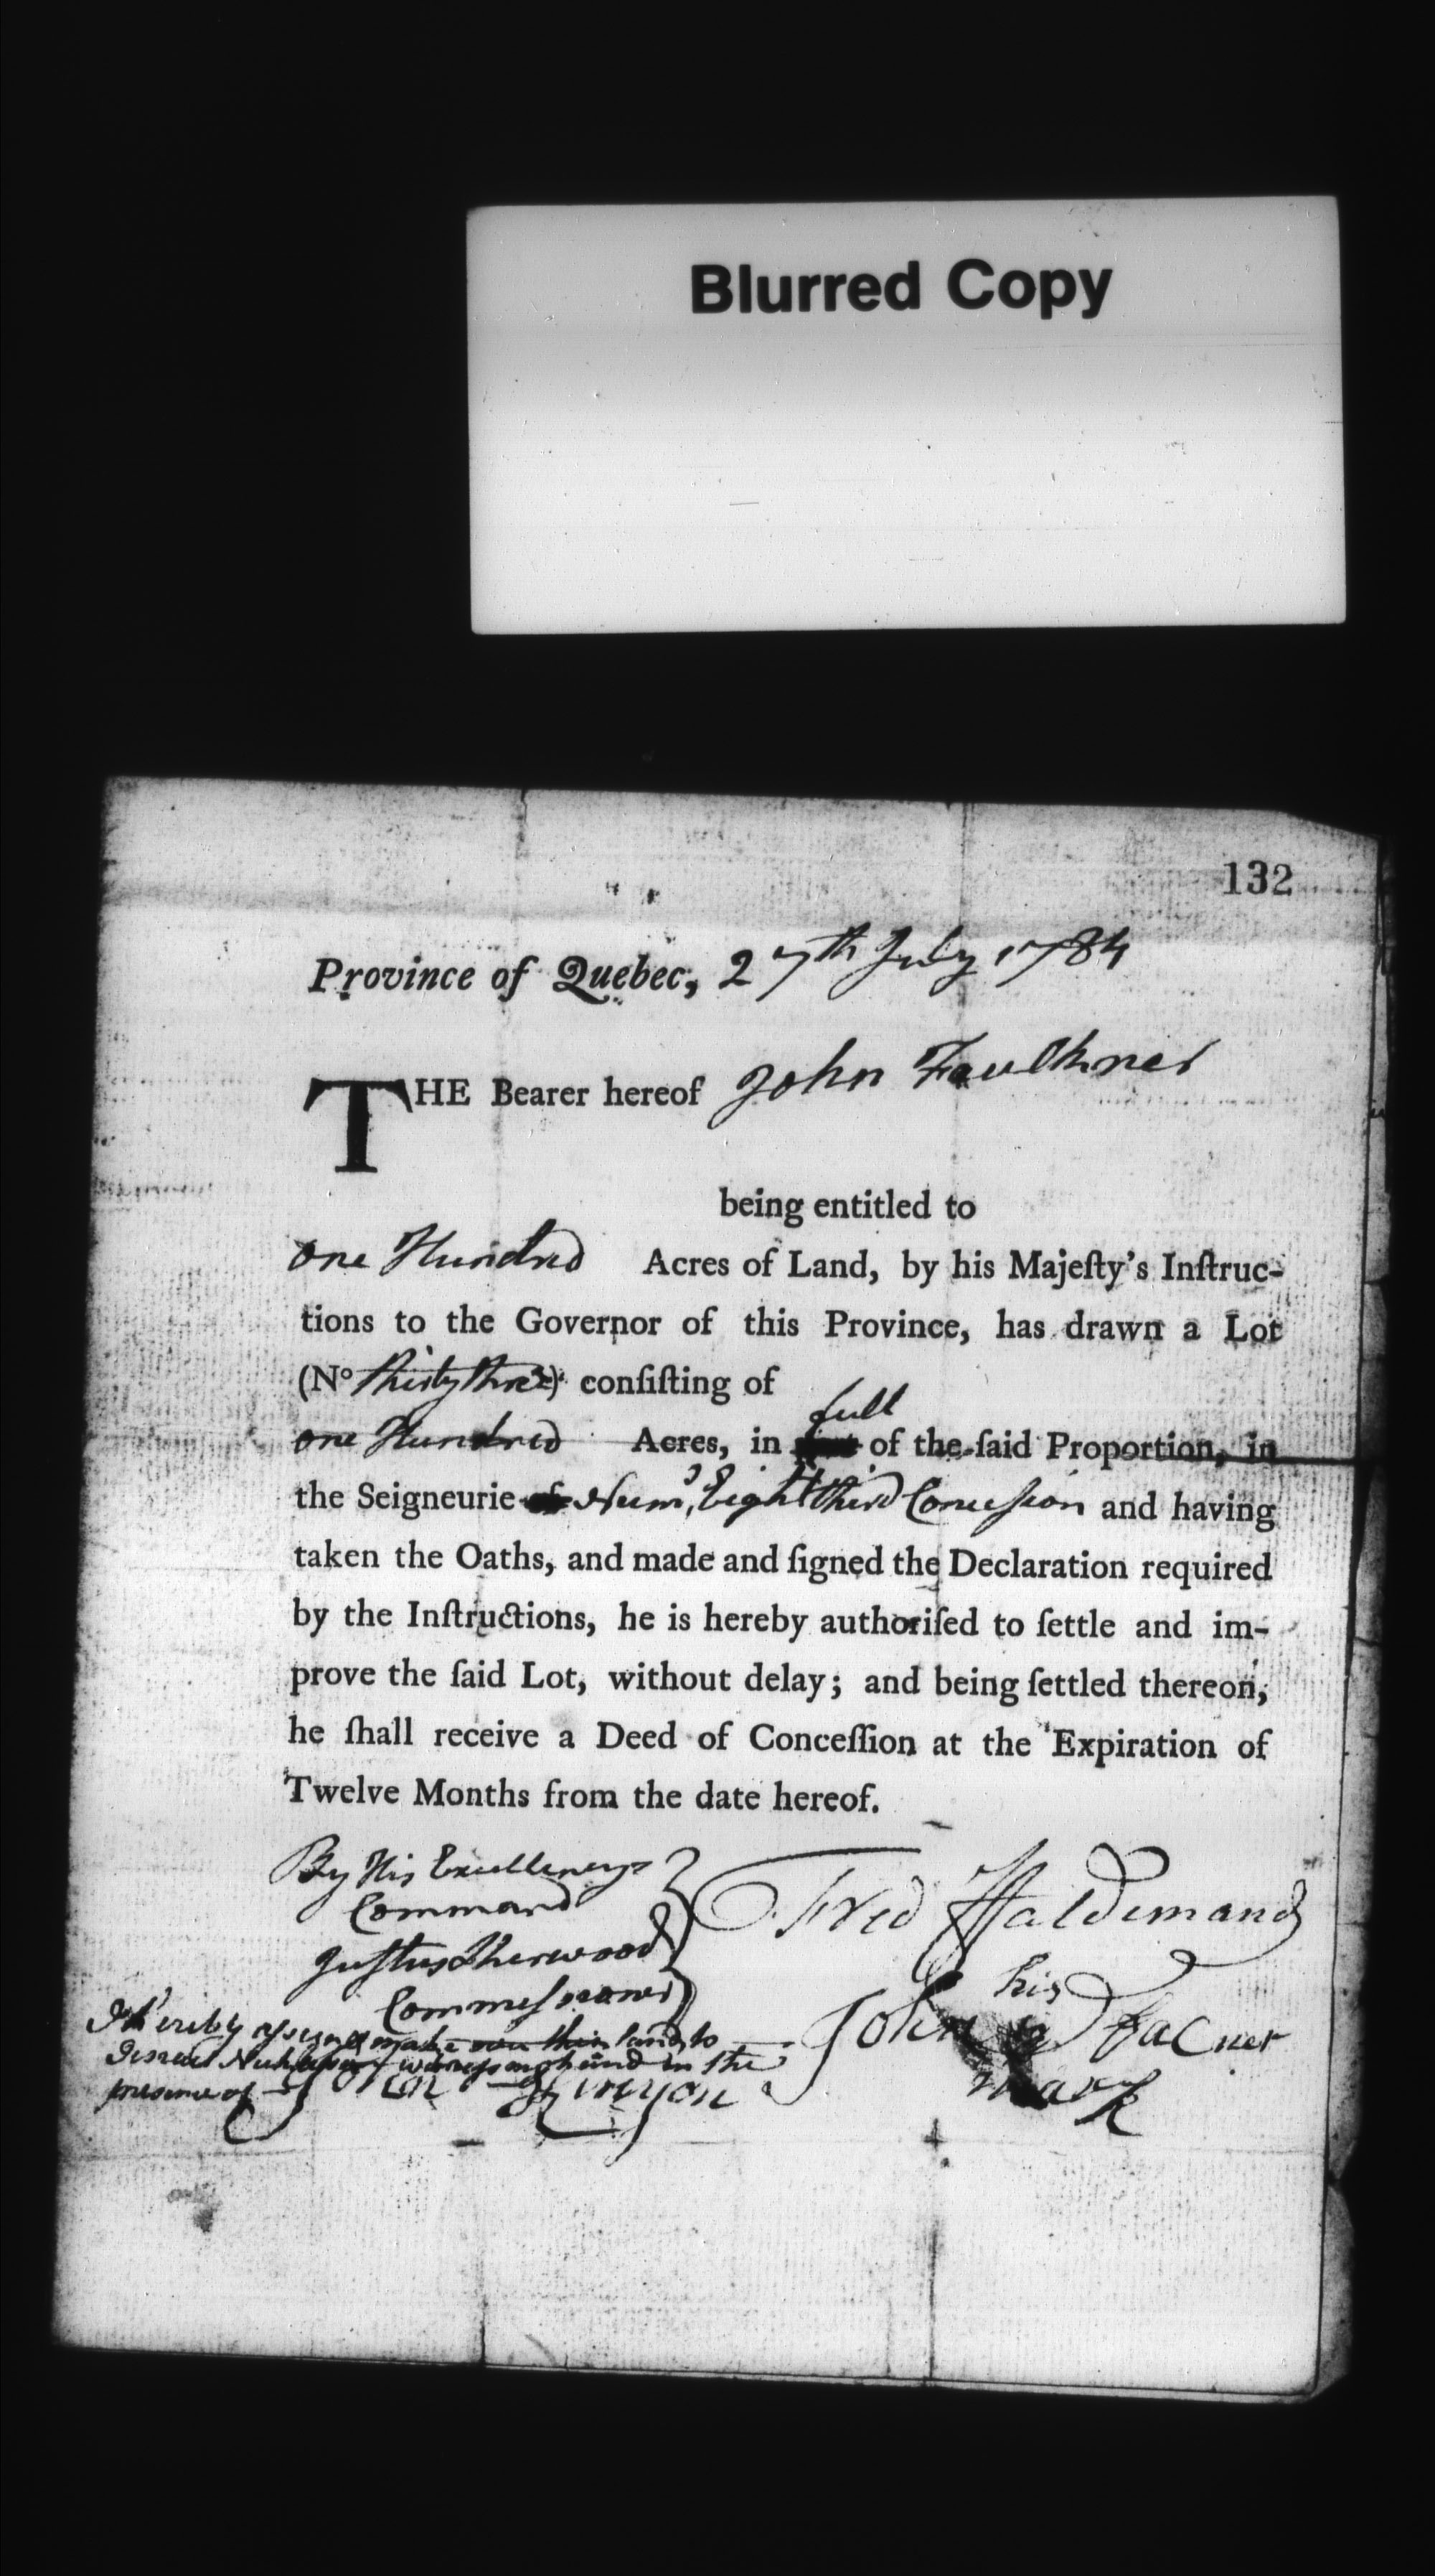 Blurred Copy
132
Province of Quebec, 27th July 1784
THE Bearer hereof John Faulkner
being entitled to
one Hundred Acres of Land, by his Majeſty's Inſtruc-
tions to the Governor of this Province, has drawn a Lot
(No thirty three) conſiſting of
full
one Hundred Acres, in of the ſaid Proportion, in
the Seigneurie of Numr. Eight third Conceſsion and having
taken the Oaths, and made and ſigned the Declaration required
by the Inſtructions, he is hereby authoriſed to ſettle and im-
prove the ſaid Lot, without delay; and being ſettled thereon,
he ſhall receive a Deed of Conceſſion at the Expiration of
Twelve Months from the date hereof.
By His Excellencys
Command
Fred Haldimand
Juſtus Sherwood
Commeſsioner
his
John Facner
mark
I hereby aſsign & make over this land to
witneſs my hand in the
presence of